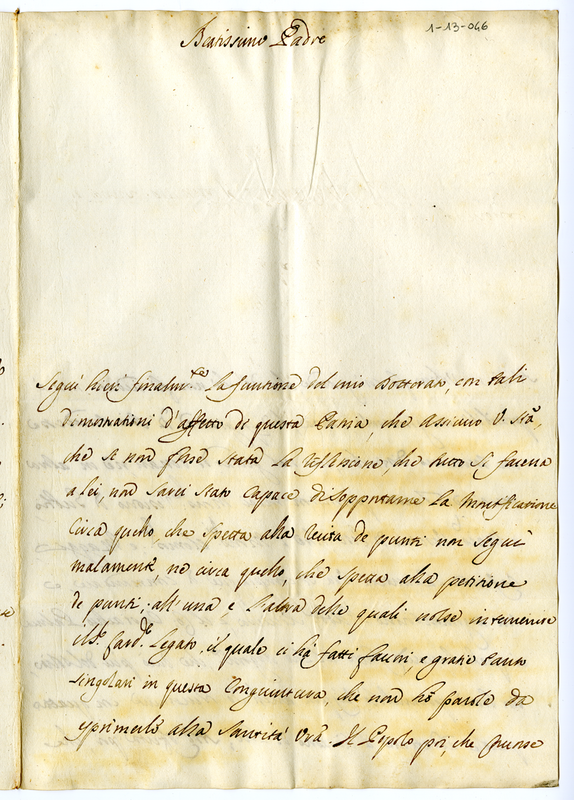 Beatissimo Padre
1-13-046
Seguì hieri finalm.te la funtione del mio Dottorato, con tali
demostrationi d'affetto di questa Patria, che assicuro V. S.tà,
che se non fosse stata la riflessione, che tutto si faceva
a Lei, non sarei stato capace di sopportarne la mortificatione
Circa quello, che spetta alla recita de punti non seguì
malamente, ne circa quello, che spetta alla petitione
de punti; all'una, e l'altra delle quali volse intervenire
il S.r Card.le Legato, il quale ci hà fatti favori, e gratie tanto
singolari in questa Congiuntura, che non hò parole da
esprimerlo alla Santità V.ra. Il Popolo poi, che